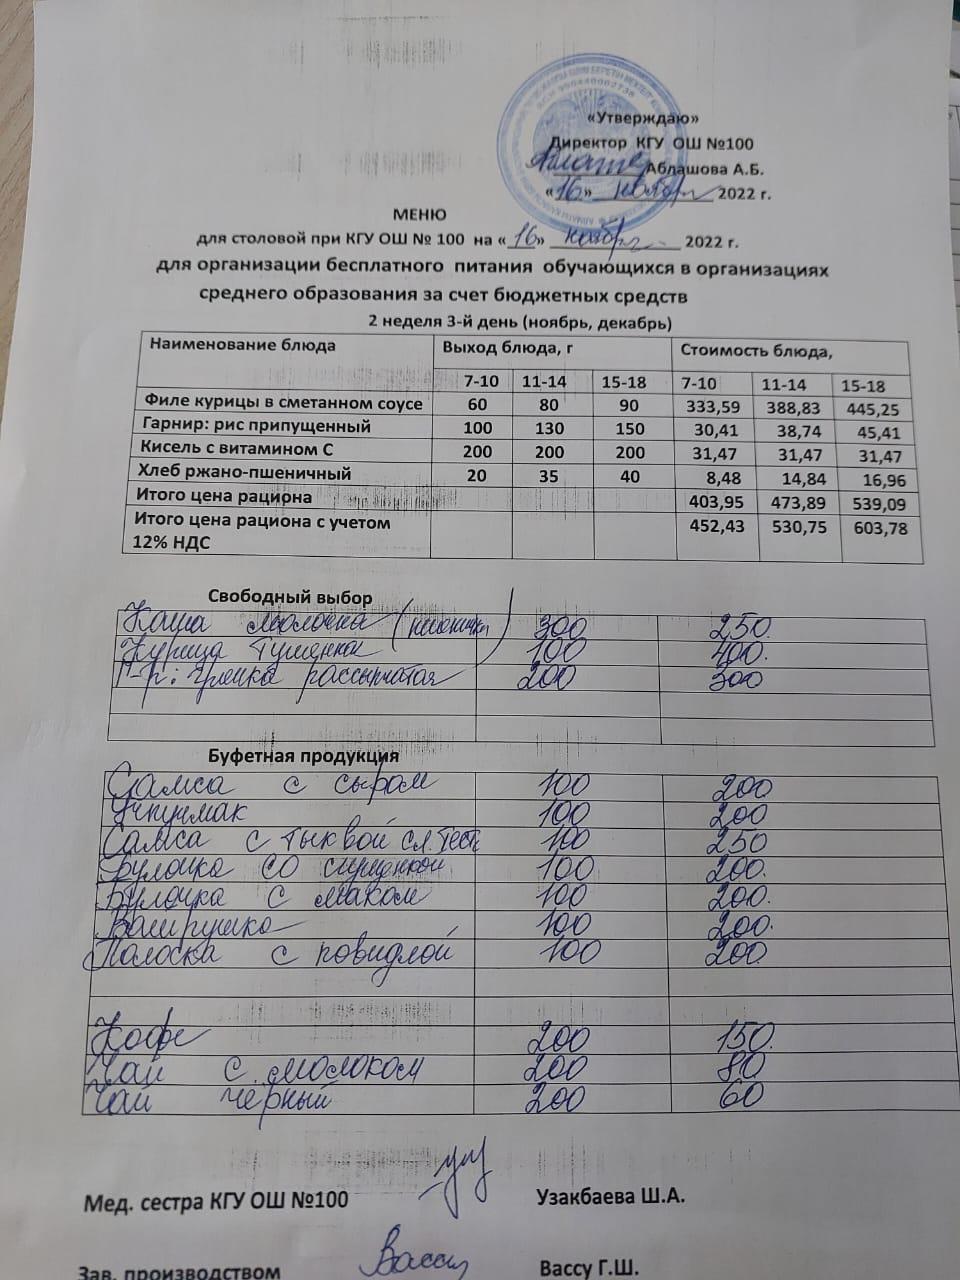 «Утверждаю»
Директор КГУ ОШ №100
Аблашова А.Б.
«16» ноября 2022 г.
МЕНЮ
для столовой при КГУ ОШ № 100 на «16» ноября 2022 г.
для организации бесплатного питания обучающихся в организациях
среднего образования за счет бюджетных средств
2 неделя 3-й день (ноябрь, декабрь)
Наименование блюда Выход блюда, г Стоимость блюда,
7-10 11-14 15-18 7-10 11-14 15-18
Филе курицы в сметанном соусе 60 80 90 333,59 388,83 445,25
Гарнир: рис припущенный 100 130 150 30,41 38,74 45,41
Кисель с витамином С 200 200 200 31,47 31,47 31,47
Хлеб ржано-пшеничный 20 35 40 8,48 14,84 16,96
Итого цена рациона 403,95 473,89 539,09
Итого цена рациона с учетом 452,43 530,75 603,78
12% НДС
Свободный выбор
Каша молочна 300 250.
Курица тушенная 100 400.
Г-р: гречка рассыпчатая 200 300
Буфетная продукция
Самса с сыром 100 200
Учпучмак 100 200
Самса с тыквой сл. тест 100 250
Булочка со сгущенкой 100 200.
Булочка с маком 100 200.
Ватрушка 100 200.
Полоска с повидлой 100 200
Кофе 200 150.
Чай с молоком 200 80
Чай чёрный 200 60
Мед. сестра КГУ ОШ №100 Узакбаева Ш.А.
Зав. производством Вассу Вассу Г.Ш.